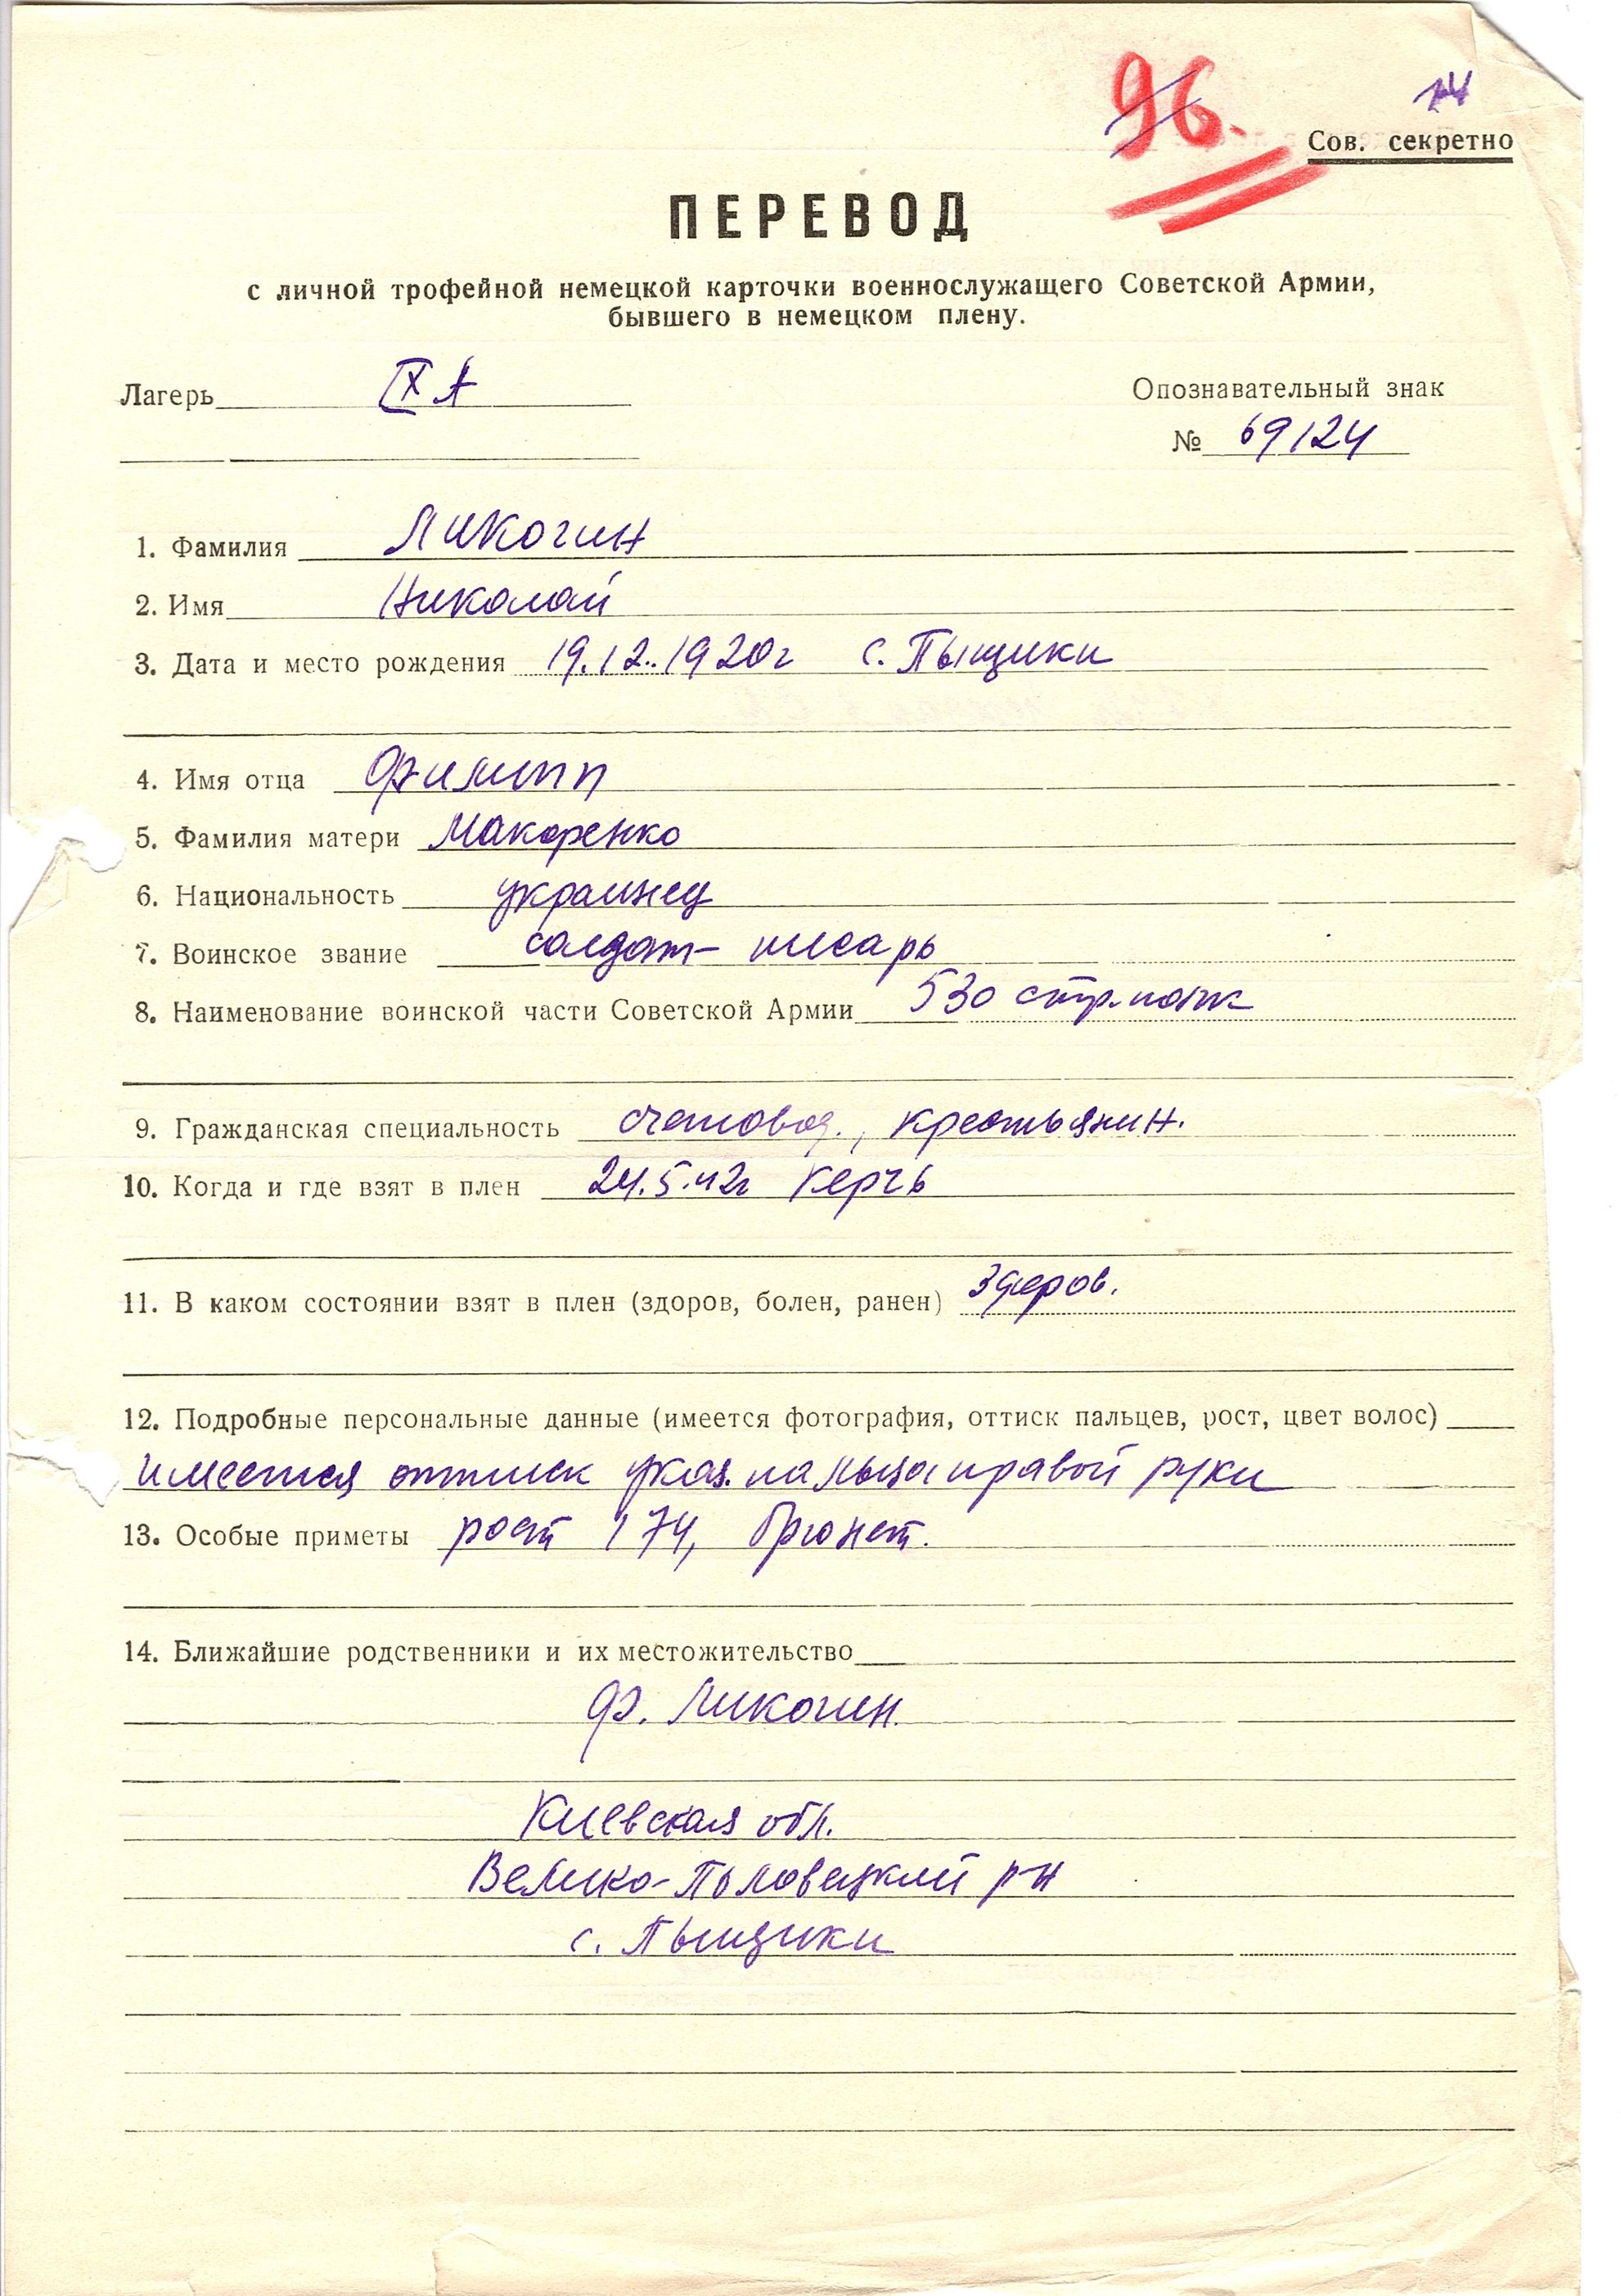 96.
14
Сов. секретно
ПЕРЕВОД
с личной трофейной немецкой карточки военнослужащего Советской Армии,
бывшего в немецком плену.
Лагерь IX A
Опознавательный знак
№ 69124
1. Фамилия Ликогин
2. Имя Николай
3. Дата и место рождения 19.12.1920г с. Пыщики
4. Имя отца Филипп
5. Фамилия матери Макаренко
6. Национальность украинец
7. Воинское звание солдат- писарь
8. Наименование воинской части Советской Армии 530 стр. полк
9. Гражданская специальность счетовод., крестьянин.
10. Когда и где взят в плен 24.5.42г Керчь
11. В каком состоянии взят в плен (здоров, болен, ранен) здоров.
12. Подробные персональные данные (имеется фотография, оттиск пальцев, рост, цвет волос)
имеется оттиск указ. пальца правой руки
13. Особые приметы рост 174, брюнет.
14. Ближайшие родственники и их местожительство
Ф. Ликогин
Киевская обл.
Велико-Половецкий р-н
с. Пыщики